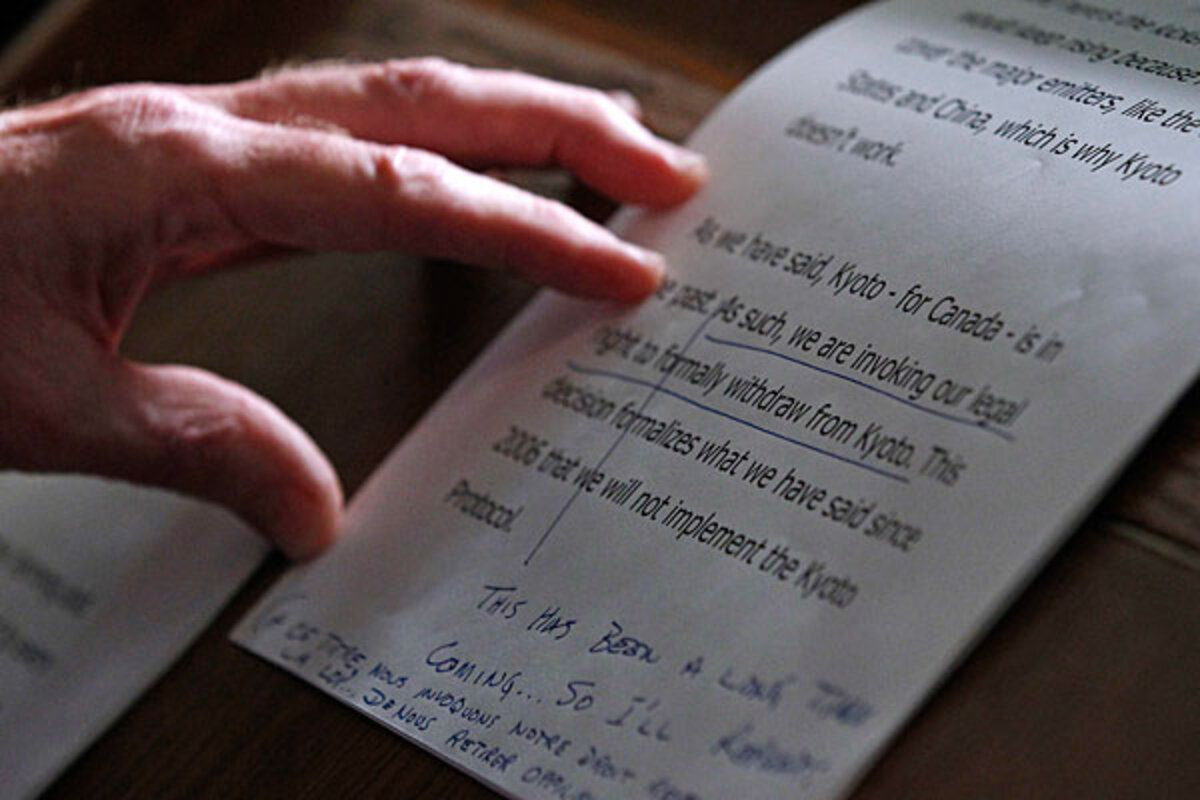 would keep rising because
cover the major emitters, like the
States and China, which is why Kyoto
doesn't work.
As we have said, Kyoto - for Canada - is in
past. As such, we are invoking our legal
right to formally withdraw from Kyoto. This
decision formalizes what we have said since
2006 that we will not implement the Kyoto
Protocol.
THIS HAS BEEN A LONG TIME
COMING... SO I'LL REPEAT:
CE TITRE NOUS INVOQUONS NOTRE DROIT
LA LOI... DE NOUS RETIRER